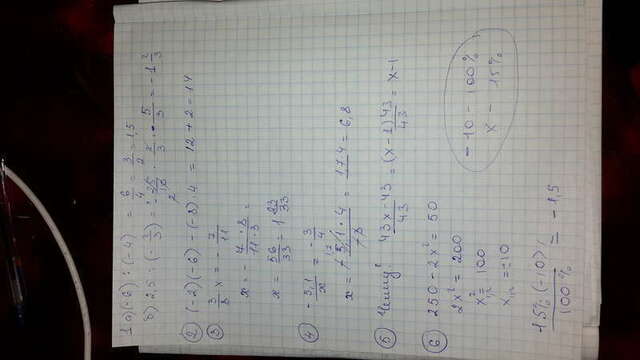 1 а) (-6) : (-4) = 6/4 = 3/2 = 1,5
б) 2,5 : (-3/2) = - 25/10 · 2/3 = - 5/3 = -1 2/3
② (-2)(-6) - (-8) 4 = 12 + 2 = 14
③ 3/8 x = - 7/11
x = - 7 · 8 / 11 · 3 =
x = 56/33 = 1 23/33
④ - 5,1/x = - 3/4
x = - 5,1 · 4 / -3 = 17 4 = 6,8
⑤ 43x - 43 / 43 = (x - 1) 43 / 43 = x - 1
⑥ 250 - 2x² = 50
2x² = 200
x² 1,2 = 100
x 1,2 = ±10
-10 - 100%
x - 15%
15% (-10) / 100% = -1,5